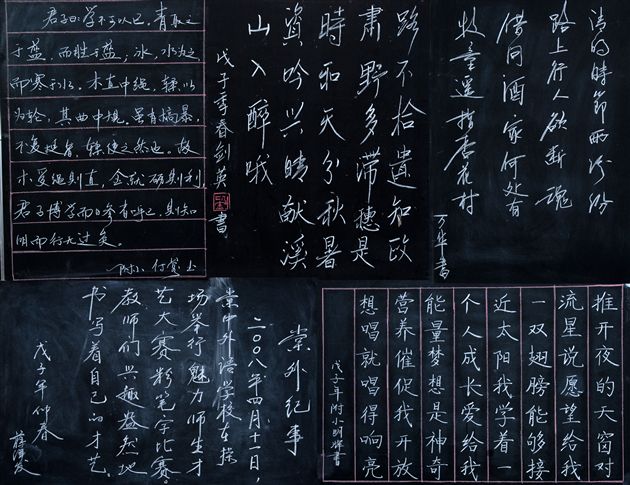 君子曰:学不可以已。青取之
于蓝,而胜于蓝;冰,水为之,
而寒于水。木直中绳,輮以
为轮,其曲中规,虽有槁暴,
不复挺者,輮使之然也。故
木受绳则直,金就砺则利,
君子博学而日参省乎己,则知
明而行无过矣。
附小 付莺 书
路不拾遗知政
肃野多滞穗是
時和天分秋暑
資吟兴晴献溪
山入醉哦
戊子季春剑英書
清明時節雨纷纷
路上行人欲断魂
借问酒家何处有
牧童遥指杏花村
万年書
棠外纪事
二〇〇八年四月十一日,
棠中外语学校在操
场举行魅力师生才
艺大赛粉笔字比赛。
教师们兴趣盎然地
书写着自己的才艺。
戊子年仲春
推开夜的天窗对
流星说愿望给我
一双翅膀能够接
近太阳我学着一
个人成长爱给我
能量梦想是神奇
营养催促我开放
想唱就唱得响亮
戊子年附小明辉書